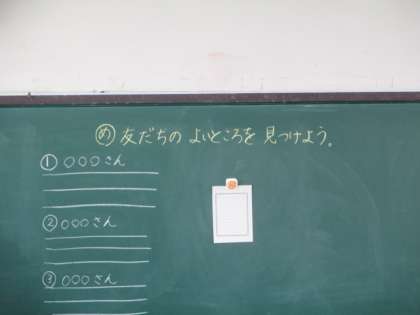 め 友だちの よいところを 見つけよう。
① ○○○さん
② ○○○さん
③ ○○○さん